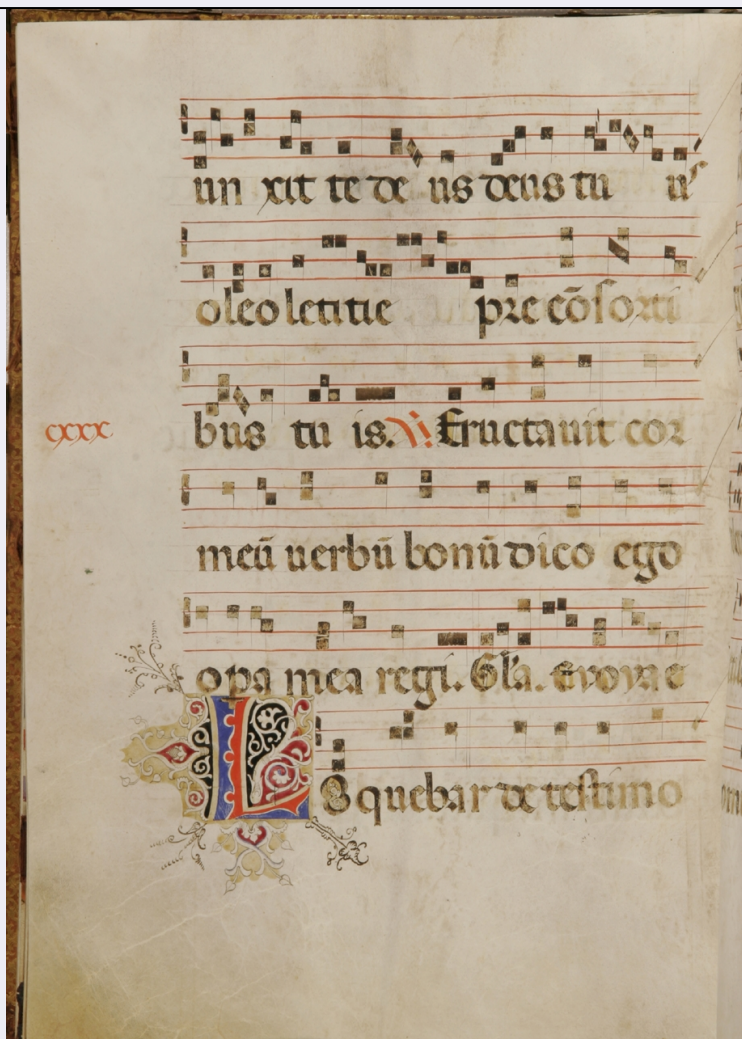 un xit te de us deus tu us
oleo letitie pre cōsorti
bus tu is. V. Eructauit cor
cxxx
meū uerbū bonū dico ego
opa mea regi. Gl'a. euouae
LOquebar de testimo